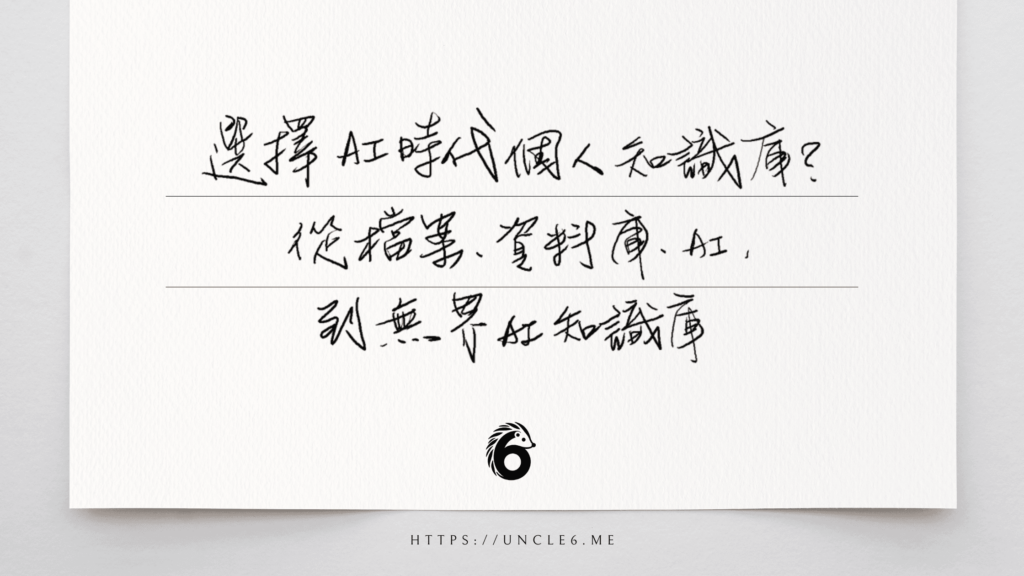 選擇 AI 時代個人知識庫?
從檔案、資料庫、AI,
到無界 AI 知識庫
6
HTTPS://UNCLE6.ME